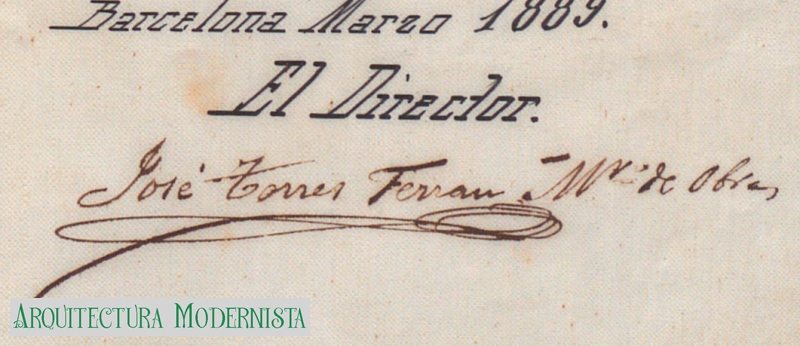 Barcelona Marzo 1889.
El Director.
José Torres Ferran Mro de Obras
ARQUITECTURA MODERNISTA